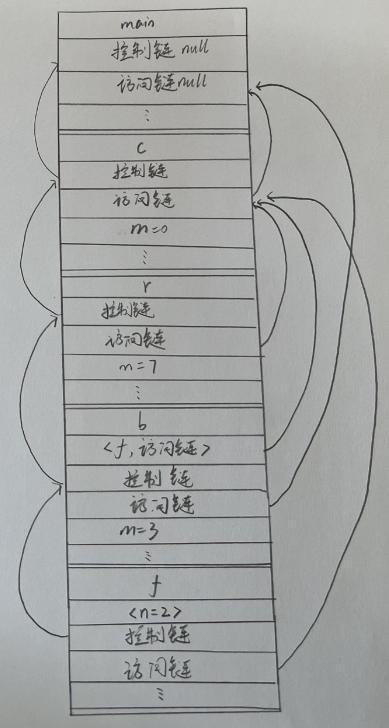 main
控制链 null
访问链 null
⋮
c
控制链
访问链
m=0
⋮
r
控制链
访问链
m=7
⋮
b
<f,访问链>
控制链
访问链
m=3
⋮
f
<n=2>
控制链
访问链
⋮